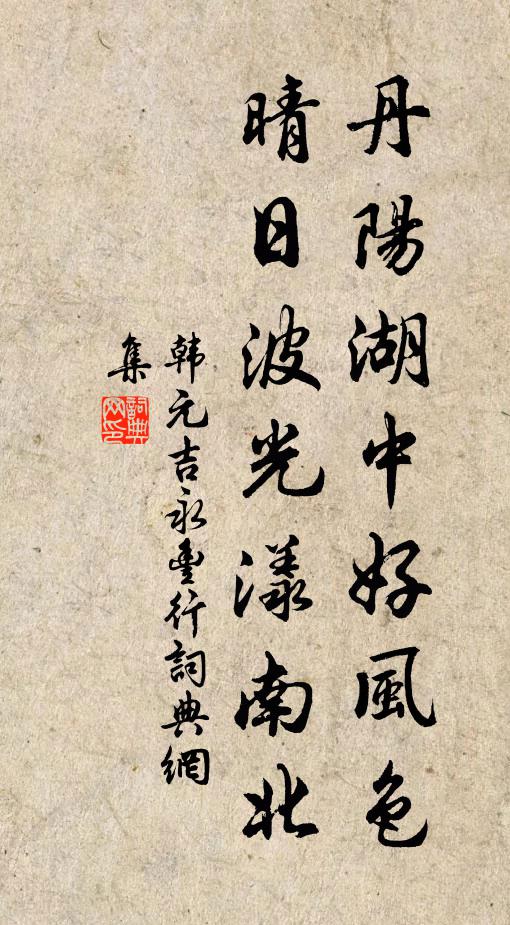 丹陽湖中好風色
晴日波光漾南北
韩元吉永豐行詞典網
集
詞典網印